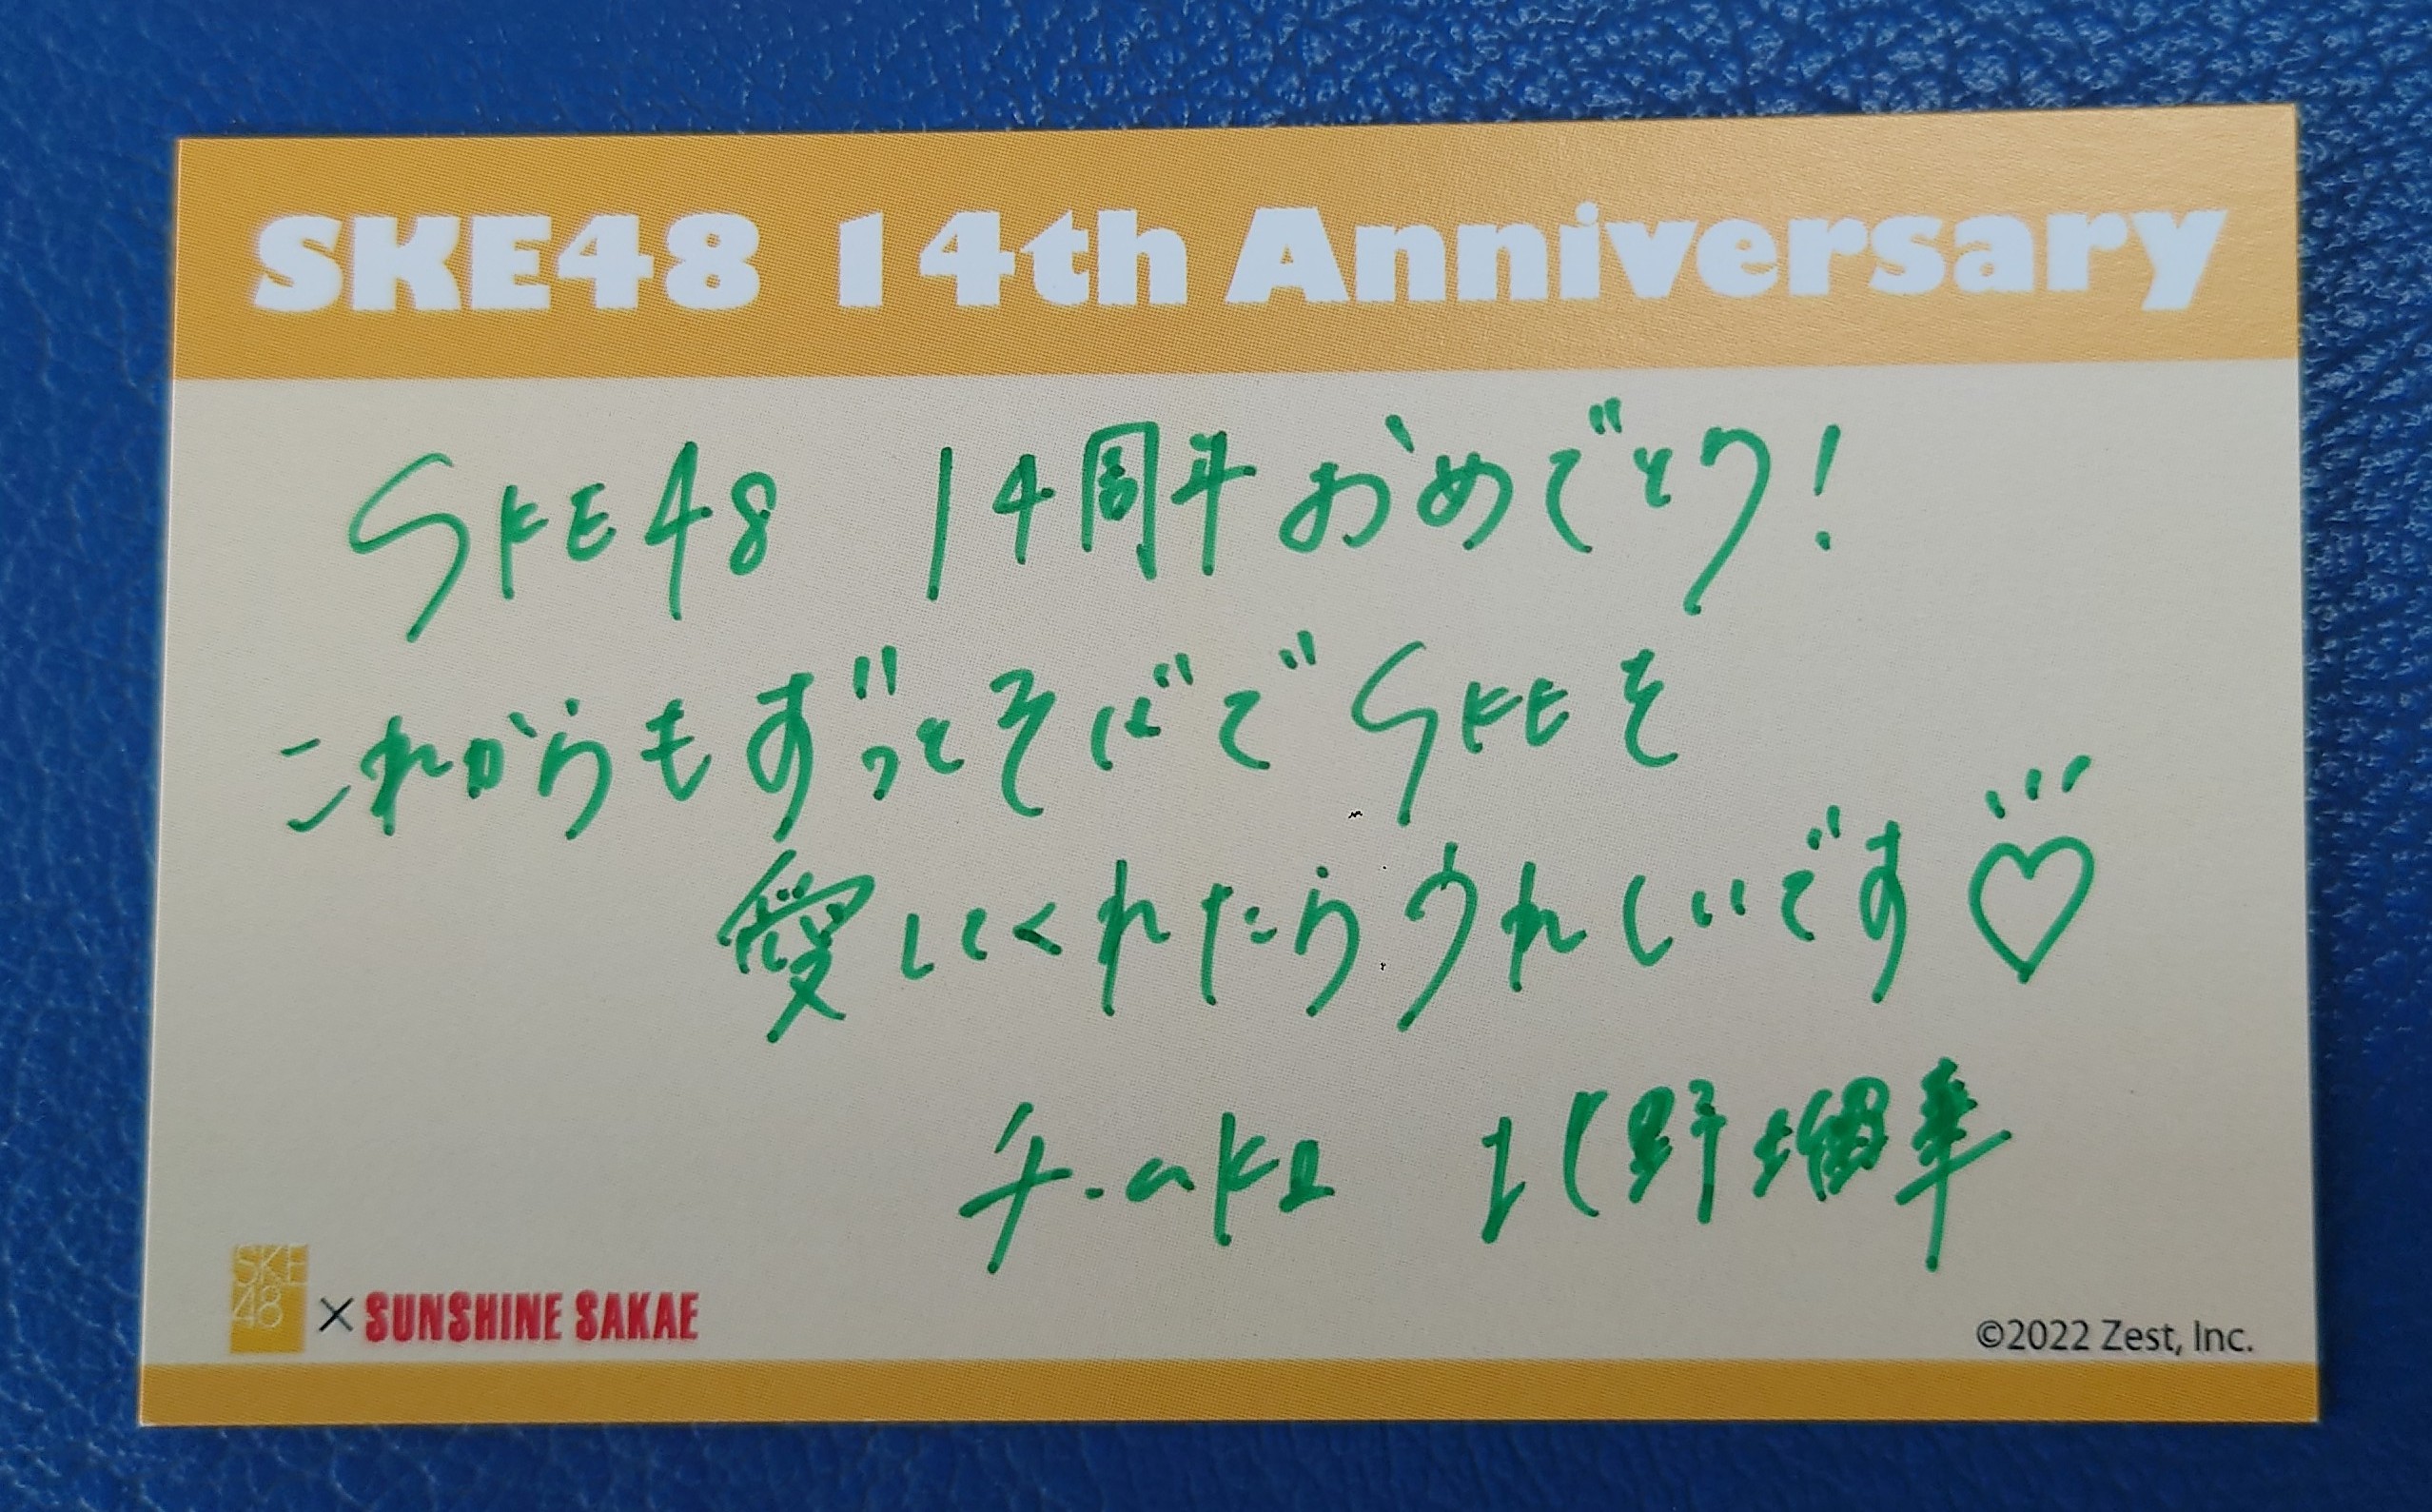 SKE48 14th Anniversary
SKE48 14周年おめでとう!
これからもずっとそばでSKEを
愛してくれたらうれしいです♡
チームKⅡ 北野瑠華
SKE48 × SUNSHINE SAKAE
©2022 Zest, Inc.